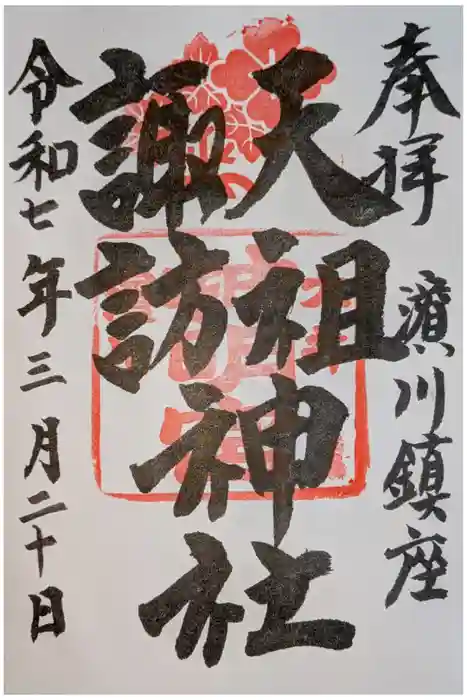 奉拝
濵川鎮座
天祖神社
諏訪神社
令和七年三月二十日